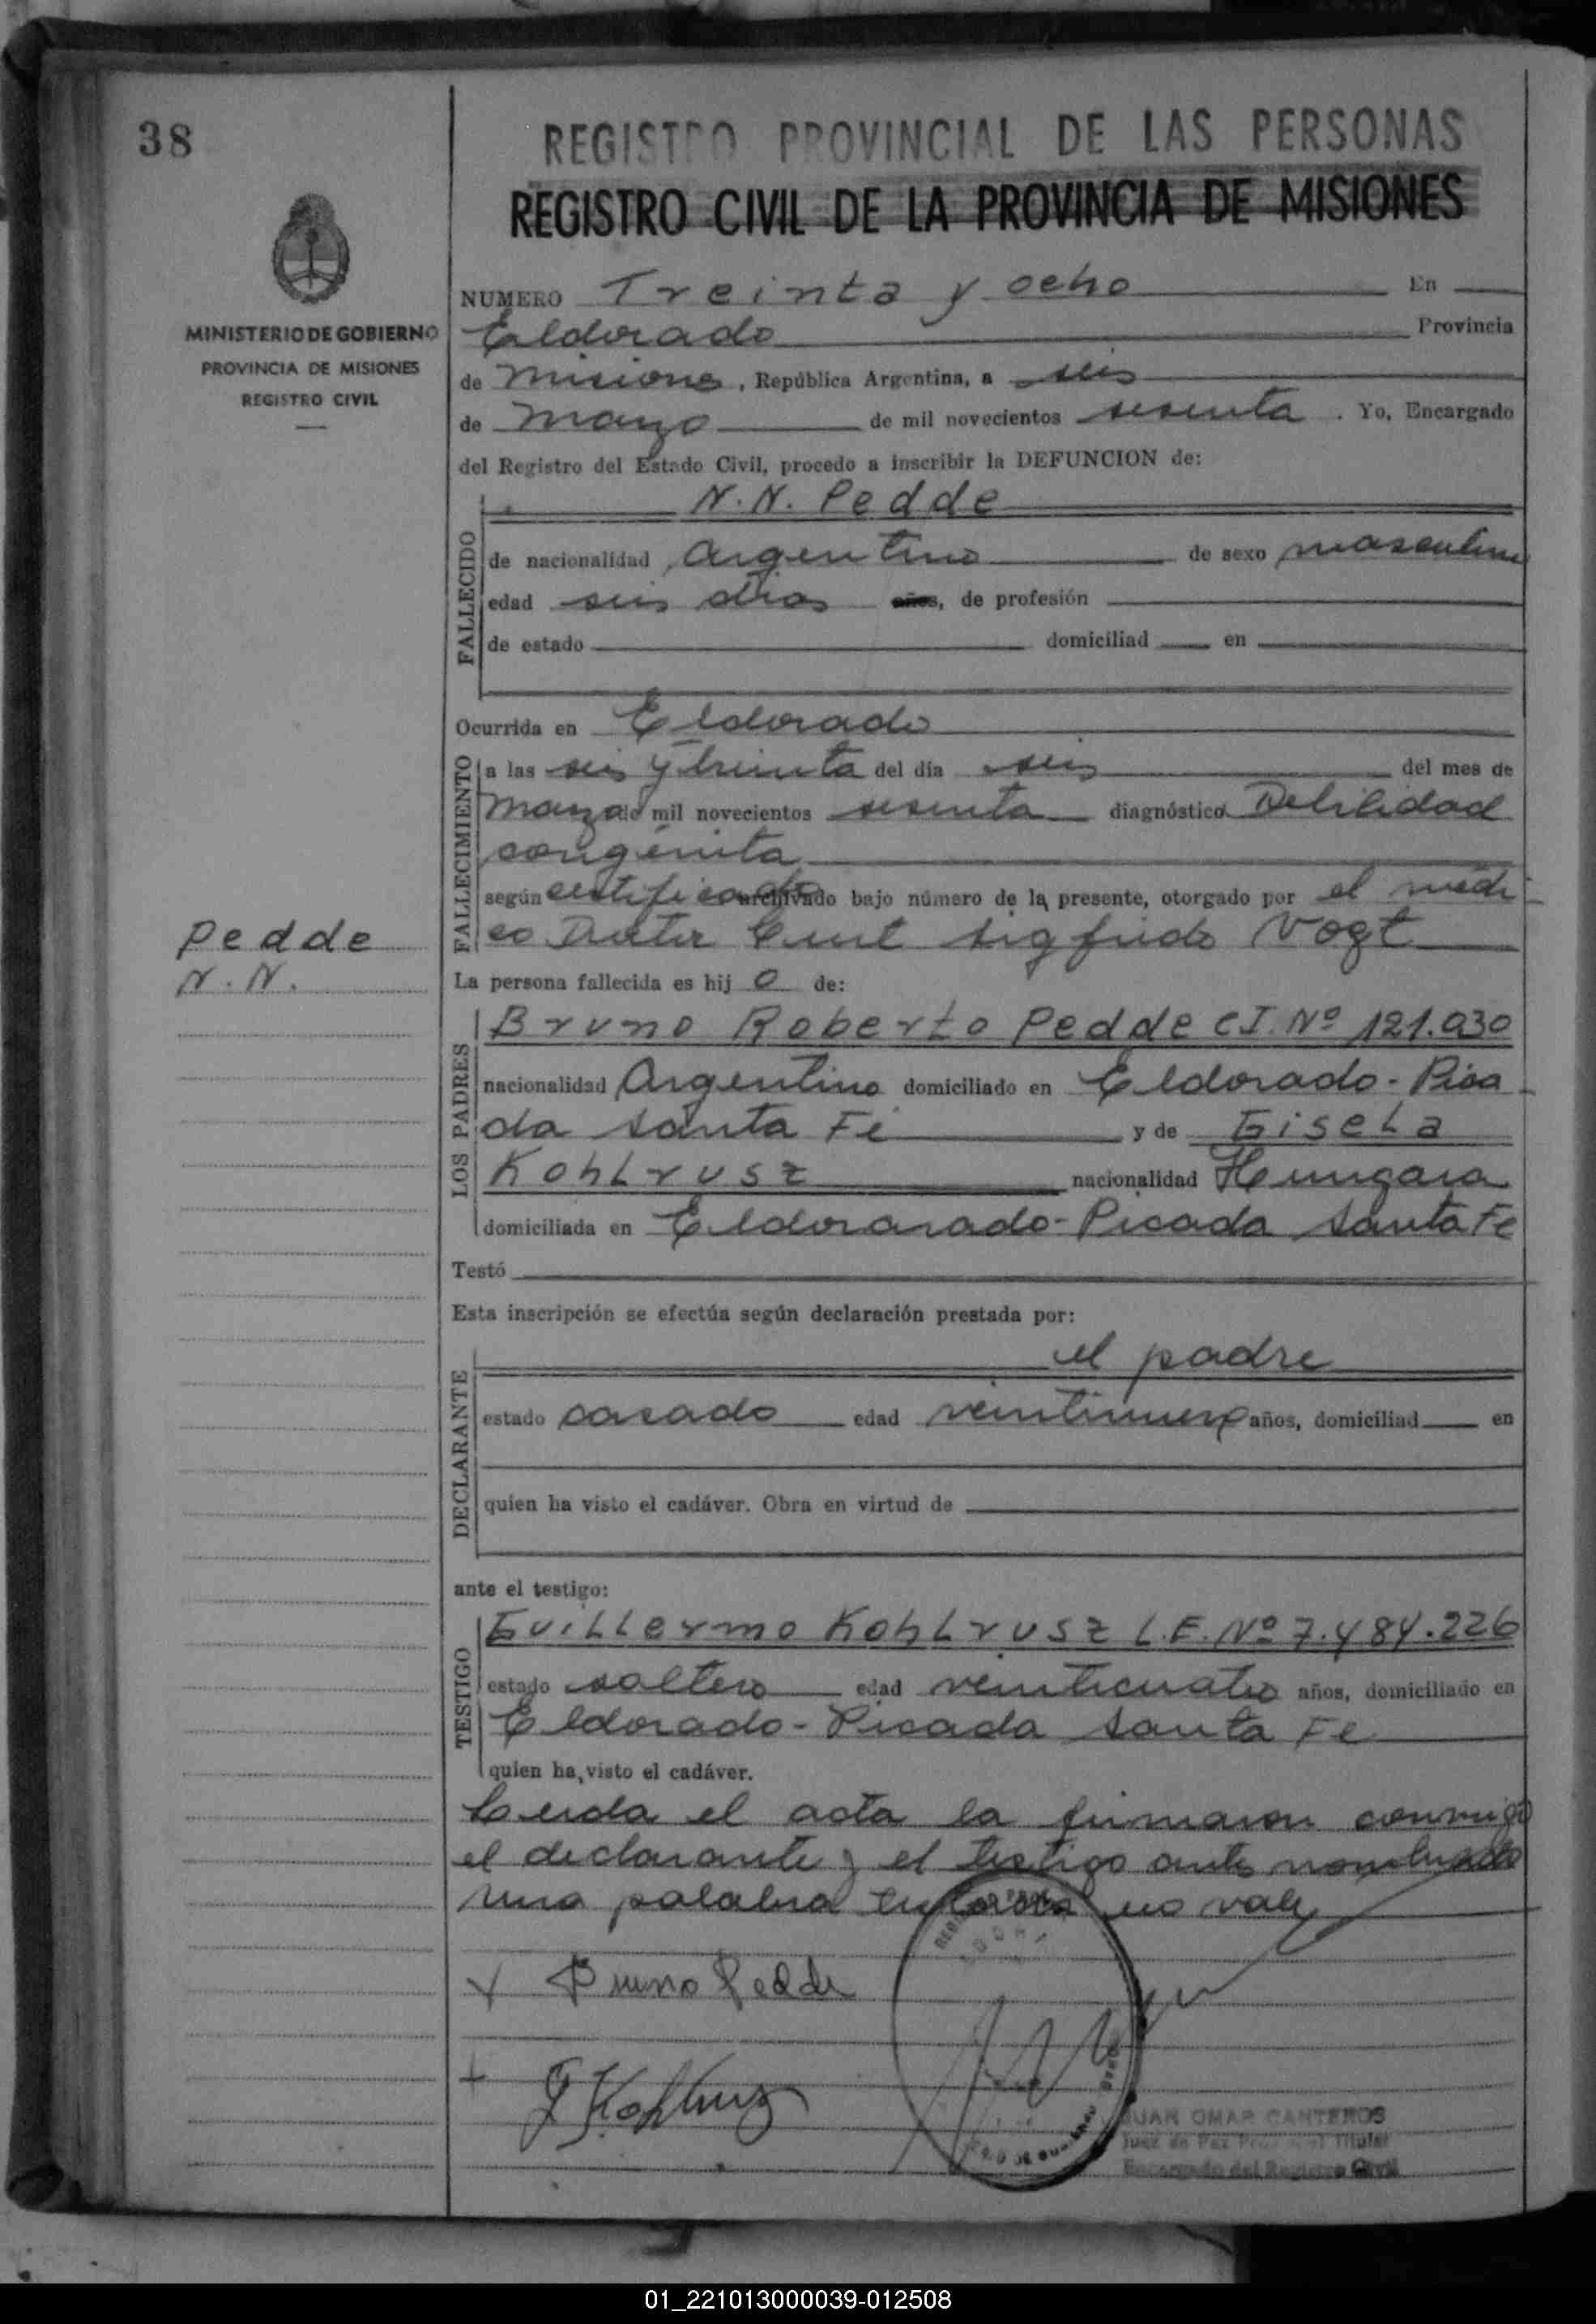 38
REGISTRO PROVINCIAL DE LAS PERSONAS
REGISTRO CIVIL DE LA PROVINCIA DE MISIONES
MINISTERIO DE GOBIERNO
PROVINCIA DE MISIONES
REGISTRO CIVIL
NUMERO Treinta y ocho En
Eldorado Provincia
de Misiones, República Argentina, a seis
de marzo de mil novecientos sesenta. Yo, Encargado
del Registro del Estado Civil, procedo a inscribir la DEFUNCION de:
FALLECIDO
N.N. Pedde
de nacionalidad Argentino de sexo masculino
edad seis dias años, de profesión
de estado domiciliad en
Ocurrida en Eldorado
FALLECIMIENTO
a las seis y treinta del día seis del mes de
marzo de mil novecientos sesenta diagnóstico Debilidad
congénita
según certificado archivado bajo número de la presente, otorgado por el médi
co Doctor Curt Sigfrido Vogt
Pedde
N.N.
La persona fallecida es hij o de:
LOS PADRES
Bruno Roberto Pedde C.I. Nº 121.030
nacionalidad Argentino domiciliado en Eldorado - Pica
da Santa Fé y de Gisela
Kohlrusz nacionalidad Hungara
domiciliada en Eldorarado - Picada Santa Fe
Testó
Esta inscripción se efectúa según declaración prestada por:
DECLARANTE
el padre
estado casado edad veintinueve años, domiciliad en
quien ha visto el cadáver. Obra en virtud de
ante el testigo:
TESTIGO
Guillermo Kohlrusz L.E. Nº 7.484.226
estado soltero edad veinticuatro años, domiciliado en
Eldorado - Picada Santa Fe
quien ha visto el cadáver.
Leida el acta la firmaron conmigo
el declarante y el testigo antes nombrado
una palabra testada no vale
Bruno Pedde
G Kohlrusz
JUAN OMAR CANTEROS
Juez de Paz Titular
Encargado del Registro Civil
01_221013000039-012508